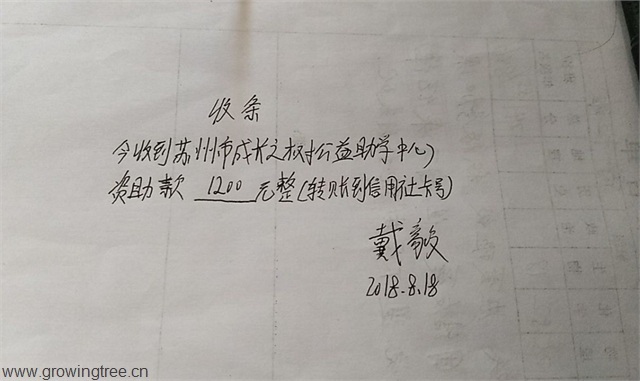 收条
今收到苏州市成长之树公益助学中心
资助款 1200 元整(转账到信用社卡号)
戴毅
2018.8.18
www.growingtree.cn